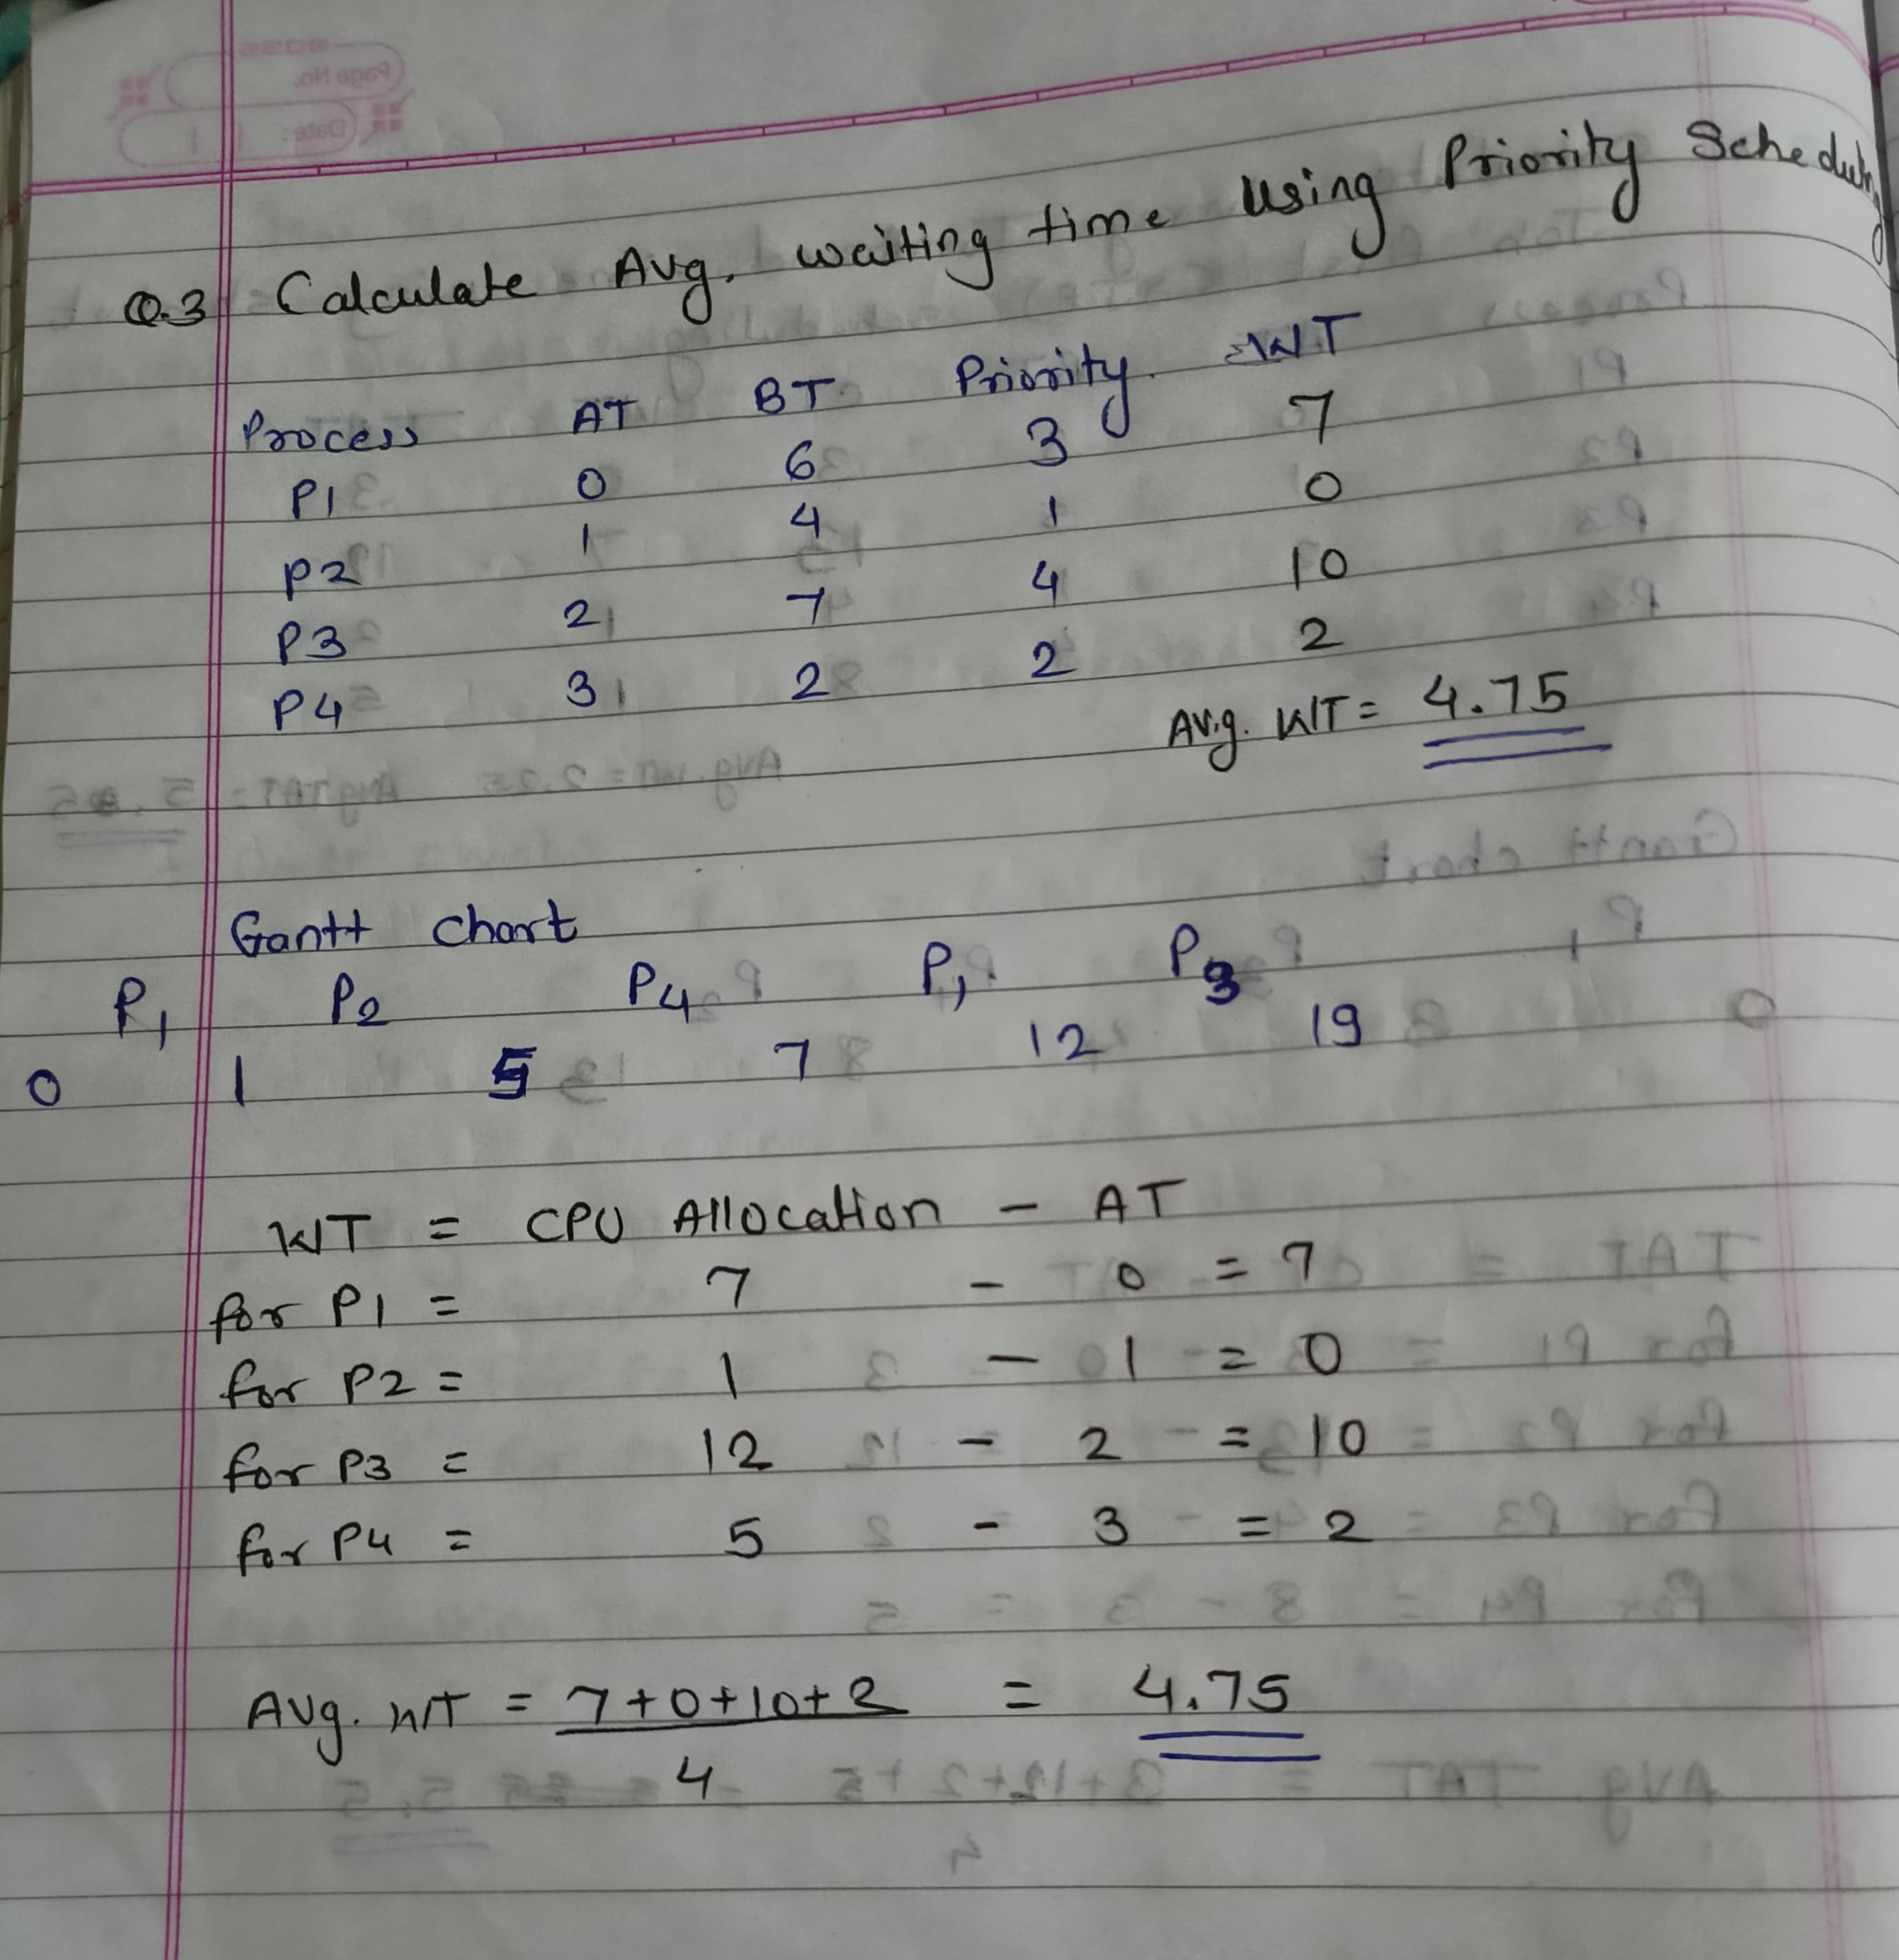 Q.3 Calculate Avg. waiting time using Priority Scheduling
Process AT BT. Priority. WT
P1 0 6 3 7
P2 1 4 1 0
P3 2 7 4 10
P4 3 2 2 2
Avg. WT = 4.75
Gantt chart
P1 P2 P4 P1 P3
0 1 5 7 12 19
WT = CPU Allocation - AT
for P1 = 7 - 0 = 7
for P2 = 1 - 1 = 0
for P3 = 12 - 2 = 10
for P4 = 5 - 3 = 2
Avg. WT = 7+0+10+2 = 4.75
4